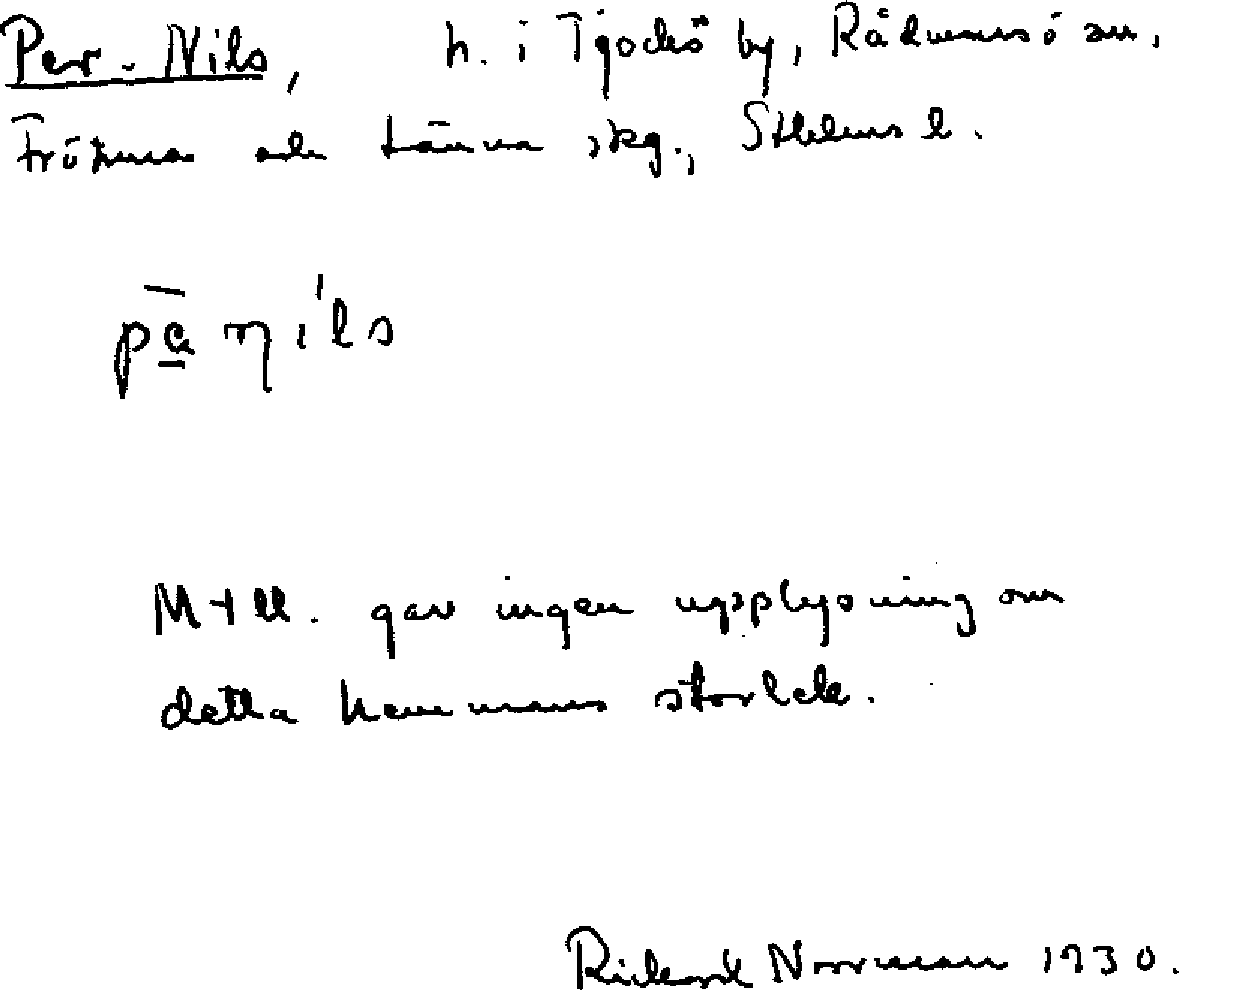 Per-Nils, h. i Tjockö by, Rådmansö sn,
Frötuna och Länna skg., Sthlms l.
Mtll. gav ingen upplysning om
detta hemmans storlek.
Rickard Norrman 1930.